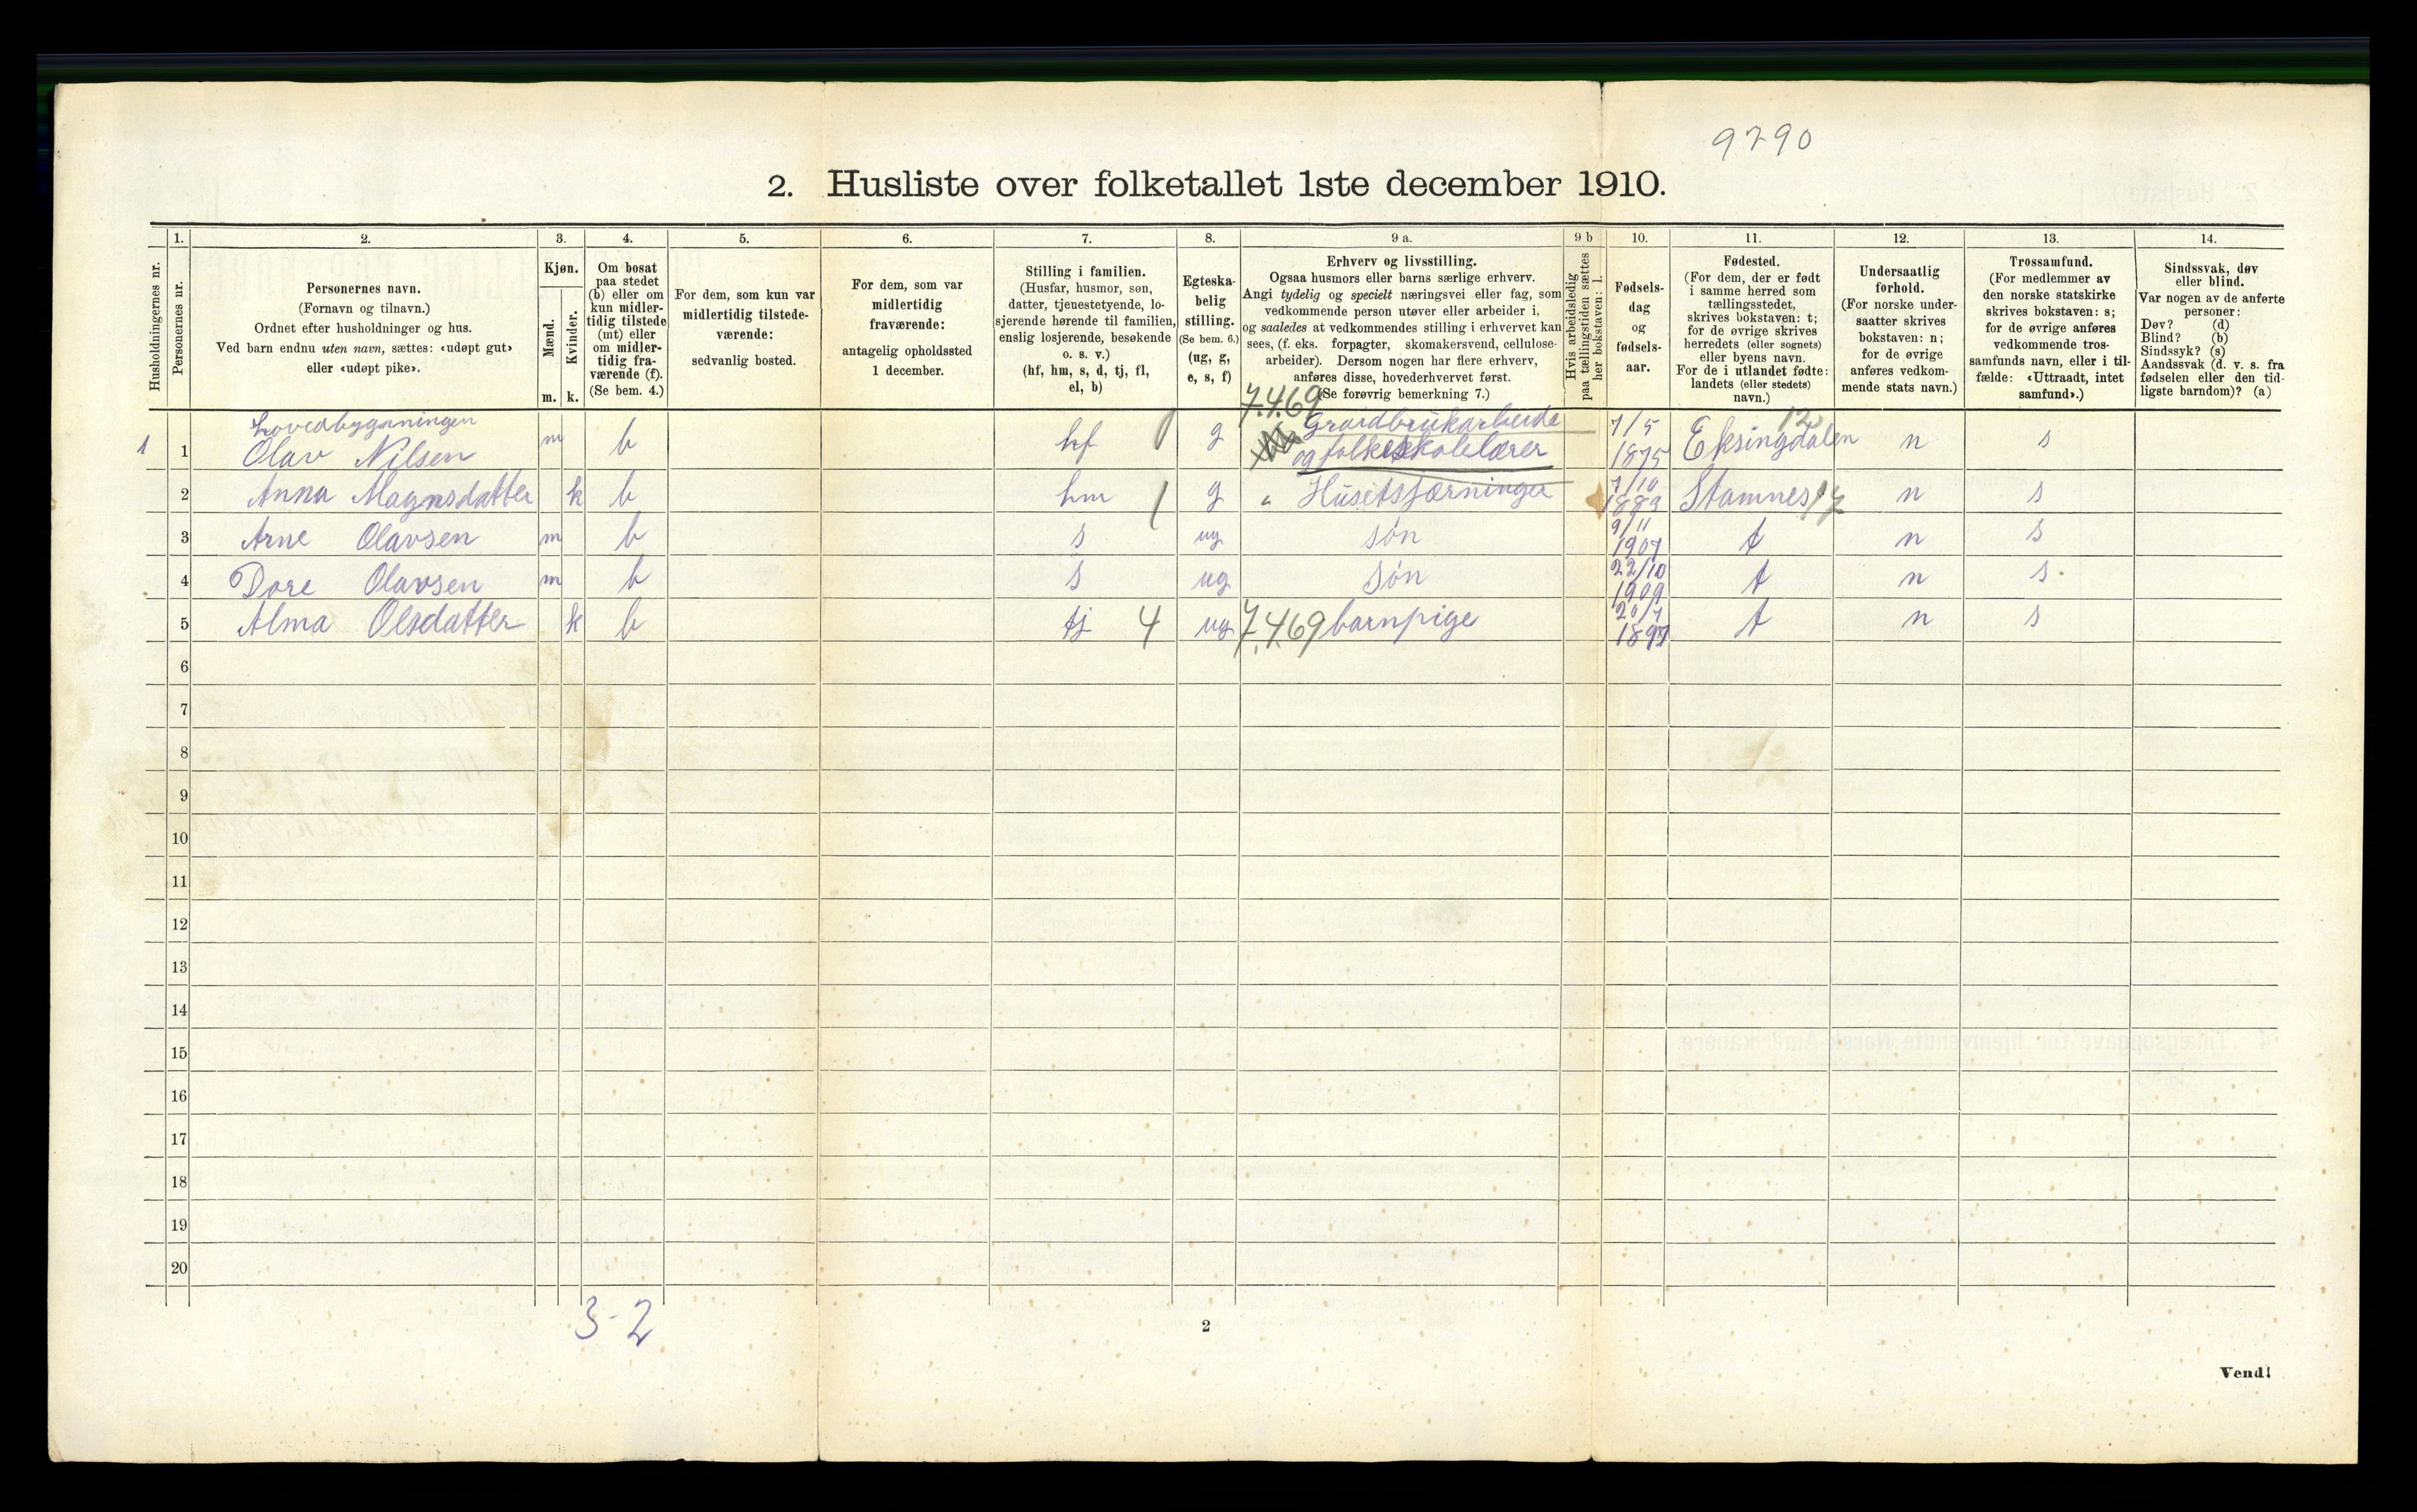 9790
2. Husliste over folketallet 1ste december 1910.
Husholdningernes nr.
1.
Personernes nr.
2.
Personernes navn.
(Fornavn og tilnavn.)
Ordnet efter husholdninger og hus.
Ved barn endnu uten navn, sættes: «udøpt gut»
eller «udøpt pike».
3.
Kjøn.
Mænd.
Kvinder.
m. k.
4.
Om bosat
paa stedet
(b) eller om
kun midler-
tidig tilstede
(mt) eller
om midler-
tidig fra-
værende (f).
(Se bem. 4.)
5.
For dem, som kun var
midlertidig tilstede-
værende:
sedvanlig bosted.
6.
For dem, som var
midlertidig
fraværende:
antagelig opholdssted
1 december.
7.
Stilling i familien.
(Husfar, husmor, søn,
datter, tjenestetyende, lo-
sjerende hørende til familien,
enslig losjerende, besøkende
o. s. v.)
(hf, hm, s, d, tj, fl,
el, b)
8.
Egteska-
belig
stilling.
(Se bem. 6.)
(ug, g,
e, s, f)
9 a.
Erhverv og livsstilling.
Ogsaa husmors eller barns særlige erhverv.
Angi tydelig og specielt næringsvei eller fag, som
vedkommende person utøver eller arbeider i,
og saaledes at vedkommendes stilling i erhvervet kan
sees, (f. eks. forpagter, skomakersvend, cellulose-
arbeider). Dersom nogen har flere erhverv,
anføres disse, hovederhvervet først.
(Se forøvrig bemerkning 7.)
9 b
Hvis arbeidsledig
paa tællingstiden sættes
her bokstaven: l.
10.
Fødsels-
dag
og
fødsels-
aar.
11.
Fødested.
(For dem, der er født
i samme herred som
tællingsstedet,
skrives bokstaven: t;
for de øvrige skrives
herredets (eller sognets)
eller byens navn.
For de i utlandet fødte:
landets (eller stedets)
navn.)
12.
Undersaatlig
forhold.
(For norske under-
saatter skrives
bokstaven: n;
for de øvrige
anføres vedkom-
mende stats navn.)
13.
Trossamfund.
(For medlemmer av
den norske statskirke
skrives bokstaven: s;
for de øvrige anføres
vedkommende tros-
samfunds navn, eller i til-
fælde: «Uttraadt, intet
samfund».)
14.
Sindssvak, døv
eller blind.
Var nogen av de anførte
personer:
Døv? (d)
Blind? (b)
Sindssyk? (s)
Aandssvak (d. v. s. fra
fødselen eller den tid-
ligste barndom)? (a)
Hovedbygningen 7.4.69 12
1 1 Olav Nilsen m b hf g og folkeskolelærer 7/5 1875 Eksingdalen n s
2 Anna Magnsdatter k b hm 1 g " Husetsfærninger 7/10 Stamnes 17 n s
3 Arne Olavsen m b s ug søn 9/11 1907 t n s
4 Dore Olavsen m b s ug søn 22/10 1909 t n s
5 Alma Olsdatter k b tj 4 ug 7.4.69 barnpige 20/7 t n s
6
7
8
9
10
11
12
13
14
15
16
17
18
19
20
3-2
2
Vend!